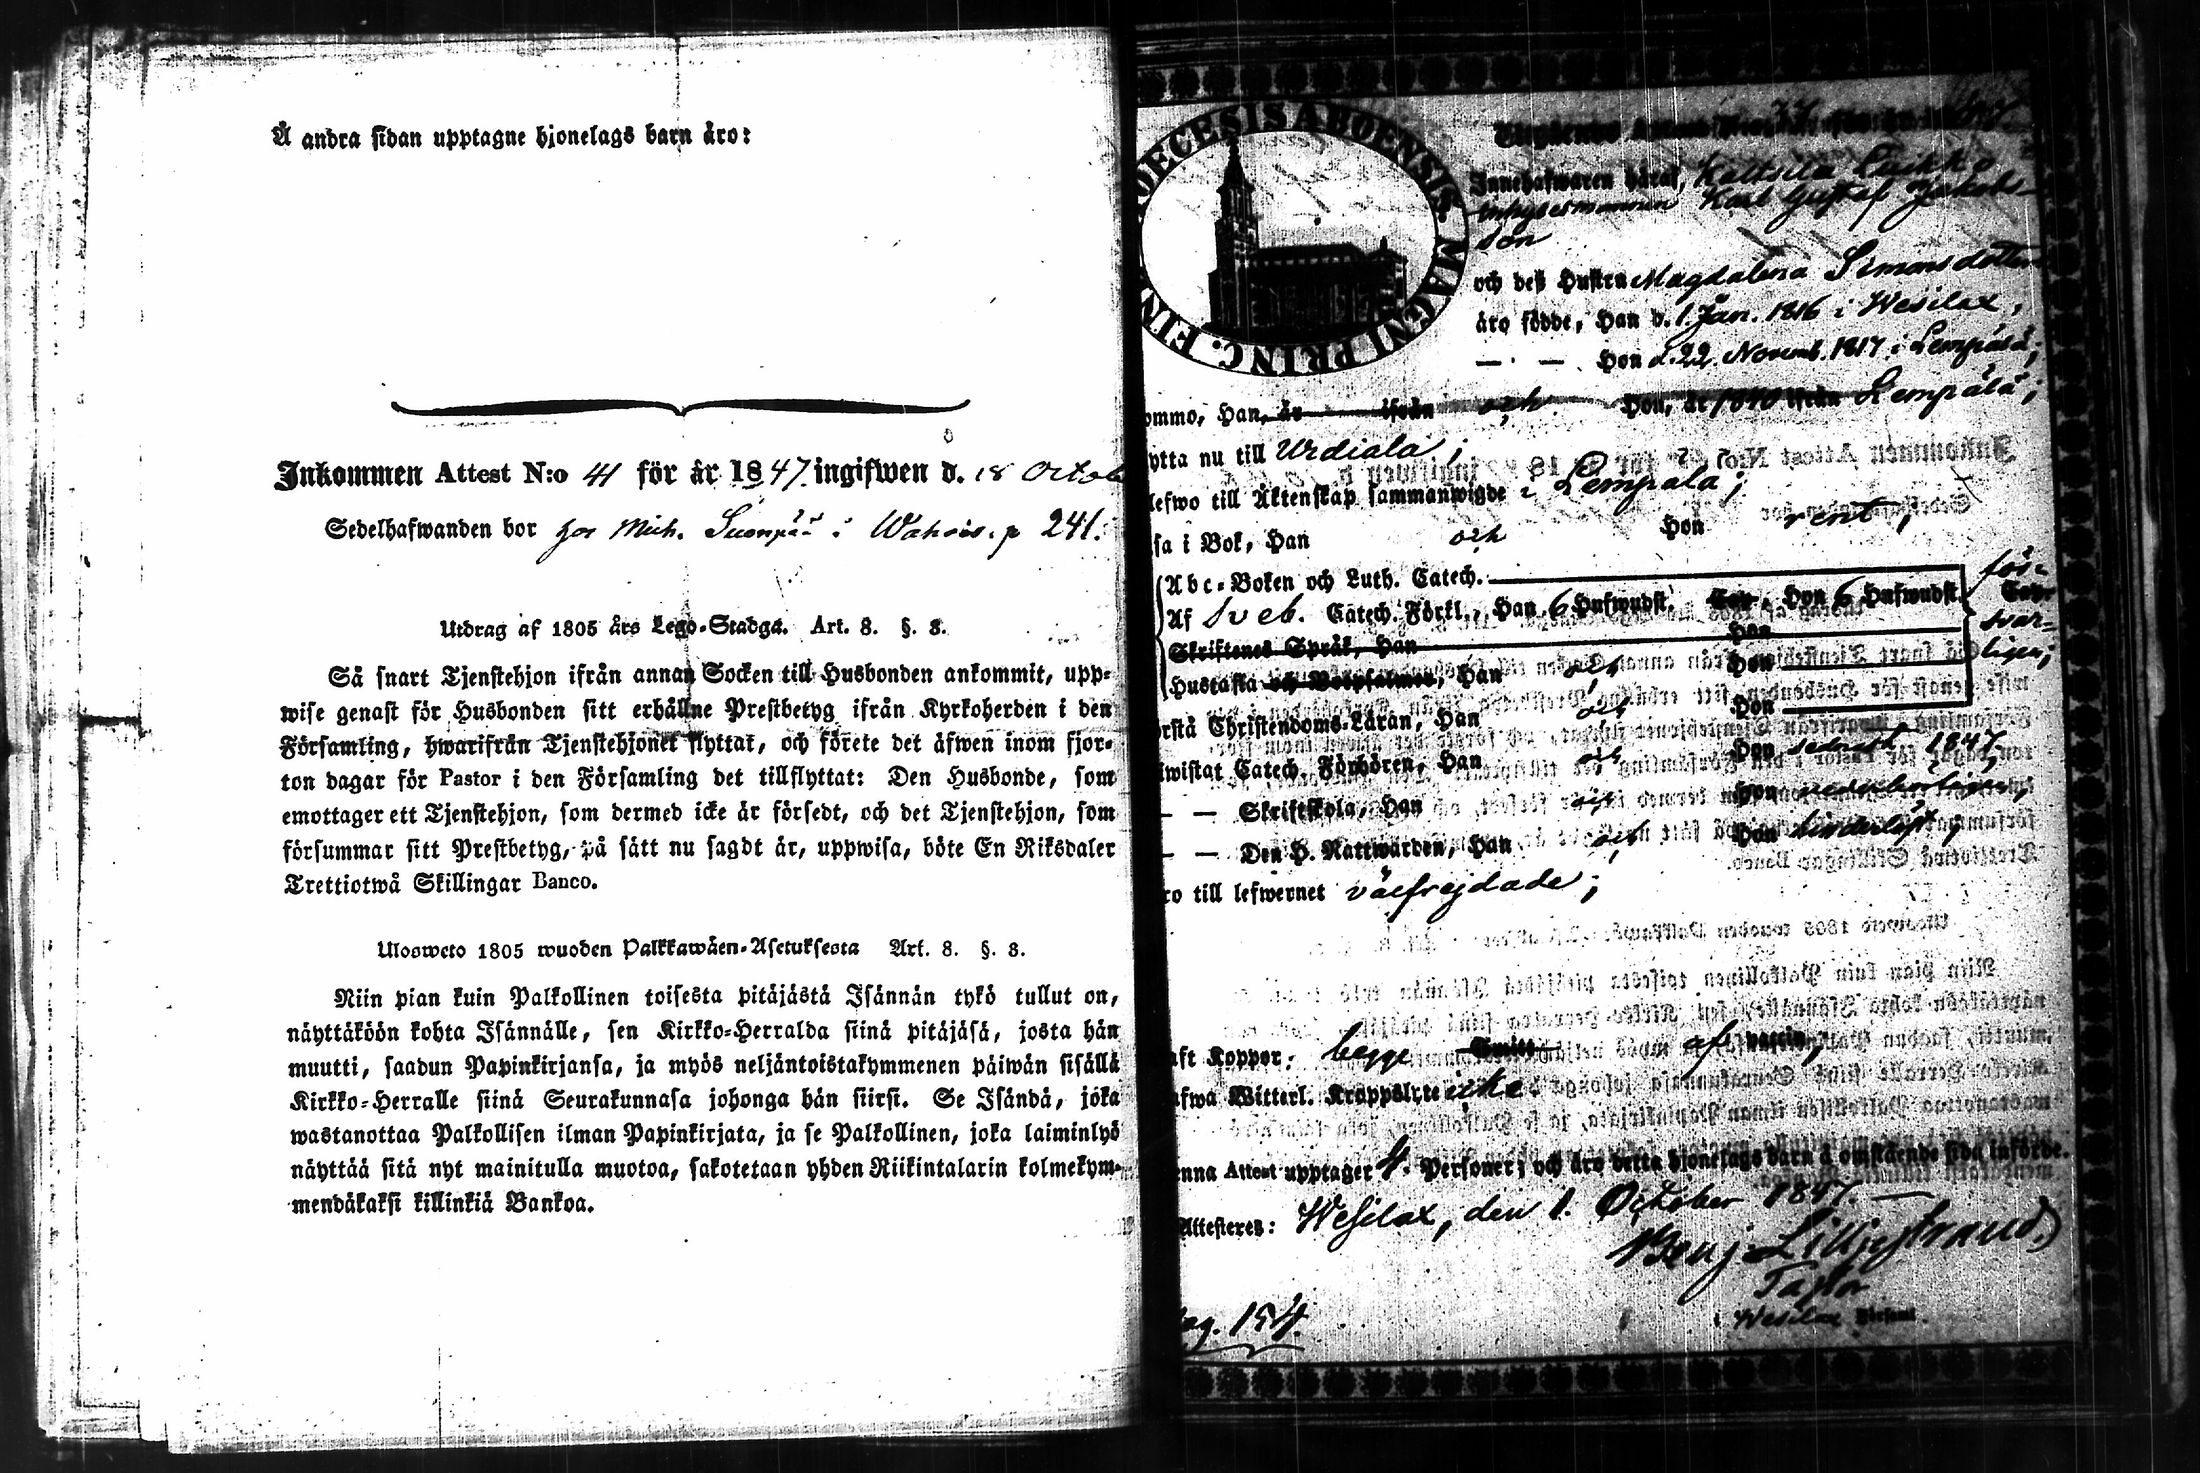 Å andra sidan upptagne hjonelags barn äro:
Inkommen Attest N:o 41 för år 1847 ingifwen d. 18 Octob
Sedelhafwanden bor hos Mich. Suonpää i Wahois. p 241.
Utdrag af 1805 års Lego-Stadga. Art. 8. §. 3.
Så snart Tjenstehjon ifrån annan Socken till Husbonden ankommit, upp-
wise genast för Husbonden sitt erhållne Prestbetyg ifrån Kyrkoherden i den
Församling, hwarifrån Tjenstehjonet flyttat, och förete det äfwen inom fjor-
ton dagar för Pastor i den Församling det tillflyttat: Den Husbonde, som
emottager ett Tjenstehjon, som dermed icke är försedt, och det Tjenstehjon, som
försummar sitt Prestbetyg, på sätt nu sagdt är, uppwisa, böte En Riksdaler
Trettiotwå Skillingar Banco.
Ulosweto 1805 wuoden Palkkawäen-Asetuksesta Art. 8. §. 3.
Niin pian kuin Palkollinen toisesta pitäjästä Isännän tykö tullut on,
näyttäköön kohta Isännälle, sen Kirkko-Herralda siinä pitäjäsä, josta hän
muutti, saadun Papinkirjansa, ja myös neljäntoistakymmenen päiwän sisällä
Kirkko-Herralle siinä Seurakunnasa johonga hän siirsi. Se Isändä, joka
wastanottaa Palkollisen ilman Papinkirjata, ja se Palkollinen, joka laiminlyö
näyttää sitä nyt mainitulla muotoa, sakotetaan yhden Riikintalarin kolmekym-
mendäkaksi killinkiä Bankoa.
OECESIS ABOENSIS. MAGNI PRINC. FIN
Innehafwaren häraf,
inhysesmannen Karl Gustaf Jakobs-
son
och dess Hustru Magdalena Simonsdotter
äro födde, Han d. 1 Jan. 1816 i Wesilax,
— — Hon d. 22 Novemb. 1817 i Lempälä;
ommo, Han, år ifrån och Hon, år 1840 ifrån Lempälä;
ytta nu till Urdiala;
lefwo till Äktenskap sammanwigde i Lempälä;
sa i Bok, Han och Hon rent;
Abc-Boken och Luth. Catech. för-
Af Sveb. Catech. Förkl., Han 6 Hufwudst. Hon 6 Hufwudst. svar-
Skriftenes Språk, Han Hon ligen;
Hustafla och Han och Hon
rstå Christendoms-Läran, Han och Hon
iwistat Catech. Förhören, Han och Hon sednast 1847,
— — Skriftskola, Han och Hon
— — Den H. Nattwarden, Han och Hon hinderlöst;
ro till lefwernet välfrejdade;
aft Koppor, begge af vaccin,
afwa Witterl. Kroppslyte icke.
enna Attest upptager 4. Personer; och äro detta hjonelags barn å omstående sida införde.
Attesteres: Wesilax, den 1. October 1847. —
Benj. Lilljestrand.
Pastor
i Wesilax Församl.
ag. 154.